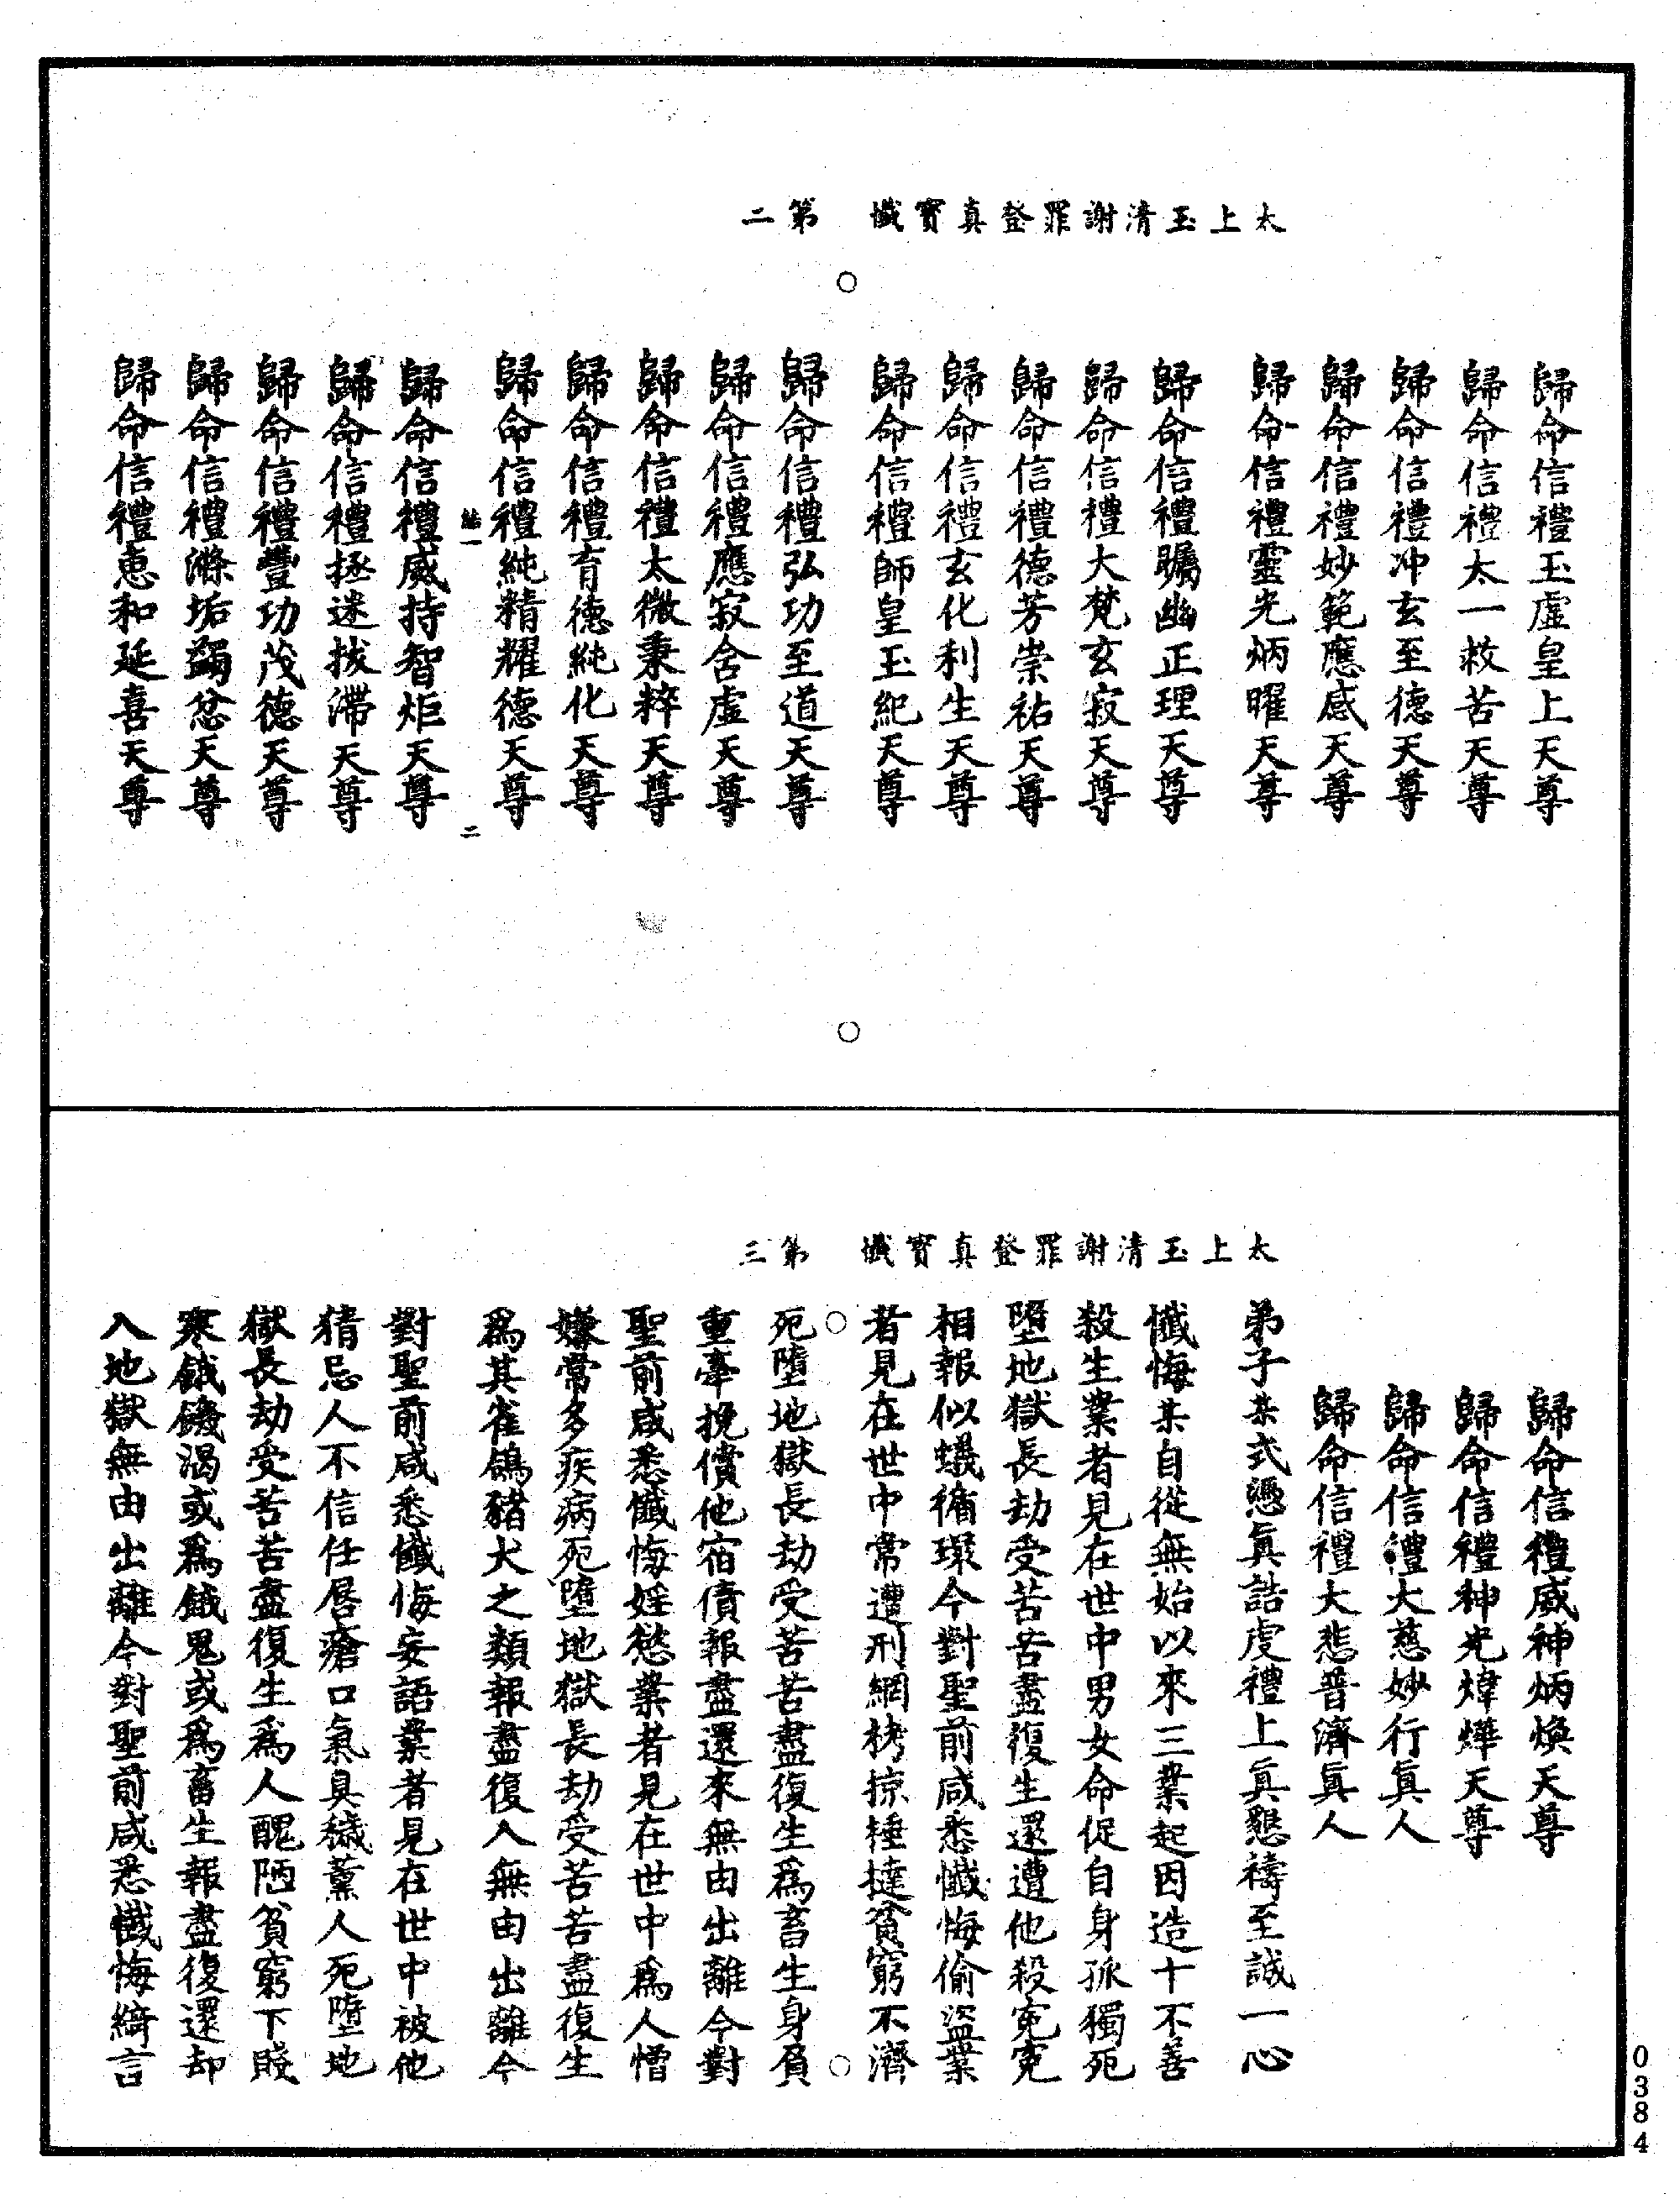 太上玉清謝罪登真寶懺　第二
歸命信禮玉虛皇上天尊
歸命信禮太一救苦天尊
歸命信禮冲玄至德天尊
歸命信禮妙範應感天尊
歸命信禮靈光炳曜天尊
歸命信禮矚幽正理天尊
歸命信禮大梵玄寂天尊
歸命信禮德芳崇祐天尊
歸命信禮玄化利生天尊
歸命信禮師皇玉紀天尊
歸命信禮弘功至道天尊
歸命信禮應寂含虛天尊
歸命信禮太微秉粹天尊
歸命信禮育德純化天尊
歸命信禮純精耀德天尊
一　二
歸命信禮威持智炬天尊
歸命信禮拯迷拔滯天尊
歸命信禮豐功茂德天尊
歸命信禮滌垢蠲忿天尊
歸命信禮惠和延喜天尊
太上玉清謝罪登真寶懺　第三
歸命信禮威神炳煥天尊
歸命信禮神光煒燁天尊
歸命信禮大慈妙行眞人
歸命信禮大悲普濟眞人
弟子某弍憑眞誥虔禮上眞懇禱至誠一心
懺悔某自從無始以來三業起因造十不善
殺生業者見在世中男女命促自身孤獨死
墮地獄長劫受苦苦盡復生還遭他殺寃寃
相報似蟻循環今對聖前咸悉懺悔偷盜業
者見在世中常遭刑網栲掠捶撻貧窮不濟
死墮地獄長劫受苦苦盡復生爲畜生身負
重牽挽償他宿債報盡還來無由出離今對
聖前咸悉懺悔婬慾業者見在世中爲人憎
嫌常多疾病死墮地獄長劫受苦苦盡復生
爲其雀鴿豬犬之類報盡復入無由出離今
對聖前咸悉懺悔妄語業者見在世中被他
猜忌人不信任唇瘡口氣臭穢薰人死墮地
獄長劫受苦苦盡復生爲人醜陋貧窮下賤
寒餓饑渴或爲餓鬼或爲畜生報盡復還却
入地獄無由出離今對聖前咸悉懺悔綺言
0384